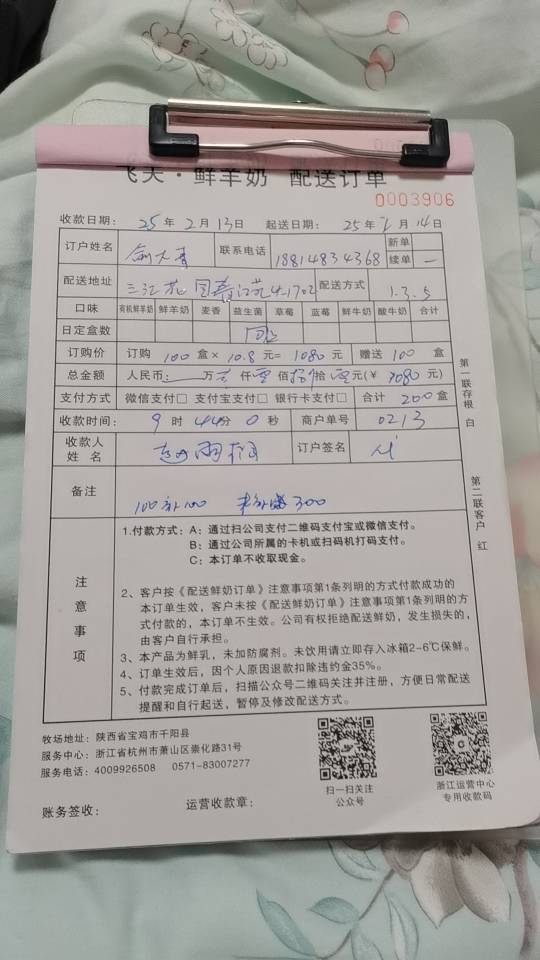 飞天·鲜羊奶 配送订单
0003906
收款日期: 25 年 2 月 13 日 起送日期: 25 年 2 月 14 日
订户姓名 联系电话 18814834368 新单
续单 一
配送地址 三江花园 4-1702 配送方式 1.3.5
口味 有机鲜羊奶 鲜羊奶 麦香 益生菌 草莓 蓝莓 鲜牛奶 酸牛奶 合计
日定盒数
订购价 订购 100 盒× 10.8 元= 1080 元 赠送 100 盒
总金额 人民币: 万 仟 佰 拾 元(¥ 1080 元)
支付方式 微信支付□ 支付宝支付□ 银行卡支付□ 合计 200 盒
收款时间: 9 时 44 分 0 秒 商户单号 0213
收款人
姓 名 订户签名
备注
100 100 300
注意事项
1.付款方式: A: 通过扫公司支付二维码支付宝或微信支付。
B: 通过公司所属的卡机或扫码机打码支付。
C: 本订单不收取现金。
2、客户按《配送鲜奶订单》注意事项第1条列明的方式付款成功的
本订单生效,客户未按《配送鲜奶订单》注意事项第1条列明的方
式付款的,本订单不生效。公司有权拒绝配送鲜奶,发生损失的,
由客户自行承担。
3、本产品为鲜乳,未加防腐剂。未饮用请立即存入冰箱2-6℃保鲜。
4、订单生效后,因个人原因退款扣除违约金35%。
5、付款完成订单后,扫描公众号二维码关注并注册,方便日常配送
提醒和自行起送,暂停及修改配送方式。
第一联存根 白
第二联客户 红
牧场地址: 陕西省宝鸡市千阳县
服务中心: 浙江省杭州市萧山区崇化路31号
服务电话: 4009926508 0571-83007277
扫一扫关注
公众号
浙江运营中心
专用收款码
账务签收: 运营收款章: